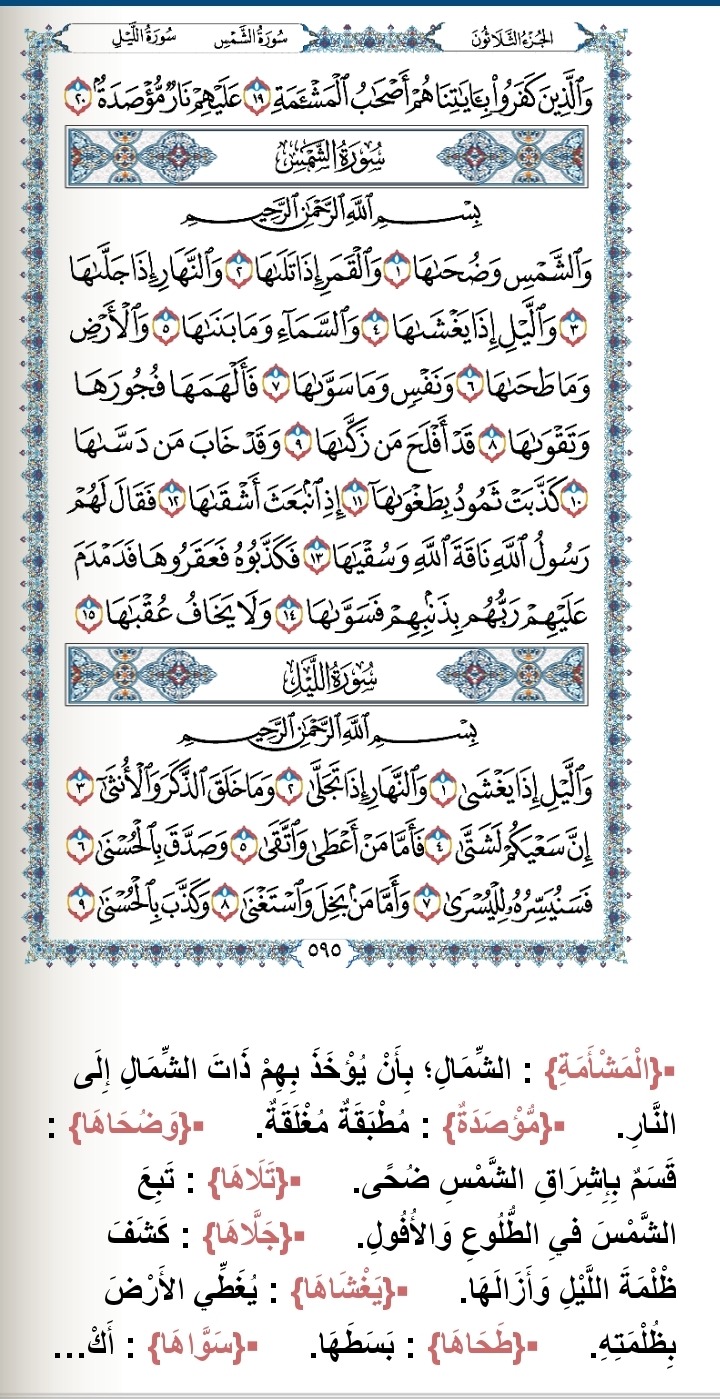 الجزء الثلاثون سورة الشمس سورة الليل
وَٱلَّذِينَ كَفَرُواْ بِـَٔايَٰتِنَا هُمۡ أَصۡحَٰبُ ٱلۡمَشۡـَٔمَةِ ١٩ عَلَيۡهِمۡ نَارٞ مُّؤۡصَدَةُۢ ٢٠
سُورَةُ الشَّمْسِ
بِسۡمِ ٱللَّهِ ٱلرَّحۡمَٰنِ ٱلرَّحِيمِ
وَٱلشَّمۡسِ وَضُحَىٰهَا ١ وَٱلۡقَمَرِ إِذَا تَلَىٰهَا ٢ وَٱلنَّهَارِ إِذَا جَلَّىٰهَا
٣ وَٱلَّيۡلِ إِذَا يَغۡشَىٰهَا ٤ وَٱلسَّمَآءِ وَمَا بَنَىٰهَا ٥ وَٱلۡأَرۡضِ
وَمَا طَحَىٰهَا ٦ وَنَفۡسٖ وَمَا سَوَّىٰهَا ٧ فَأَلۡهَمَهَا فُجُورَهَا
وَتَقۡوَىٰهَا ٨ قَدۡ أَفۡلَحَ مَن زَكَّىٰهَا ٩ وَقَدۡ خَابَ مَن دَسَّىٰهَا
١٠ كَذَّبَتۡ ثَمُودُ بِطَغۡوَىٰهَآ ١١ إِذِ ٱنۢبَعَثَ أَشۡقَىٰهَا ١٢ فَقَالَ لَهُمۡ
رَسُولُ ٱللَّهِ نَاقَةَ ٱللَّهِ وَسُقۡيَٰهَا ١٣ فَكَذَّبُوهُ فَعَقَرُوهَا فَدَمۡدَمَ
عَلَيۡهِمۡ رَبُّهُم بِذَنۢبِهِمۡ فَسَوَّىٰهَا ١٤ وَلَا يَخَافُ عُقۡبَٰهَا ١٥
سُورَةُ اللَّيْلِ
بِسۡمِ ٱللَّهِ ٱلرَّحۡمَٰنِ ٱلرَّحِيمِ
وَٱلَّيۡلِ إِذَا يَغۡشَىٰ ١ وَٱلنَّهَارِ إِذَا تَجَلَّىٰ ٢ وَمَا خَلَقَ ٱلذَّكَرَ وَٱلۡأُنثَىٰٓ ٣
إِنَّ سَعۡيَكُمۡ لَشَتَّىٰ ٤ فَأَمَّا مَنۡ أَعۡطَىٰ وَٱتَّقَىٰ ٥ وَصَدَّقَ بِٱلۡحُسۡنَىٰ ٦
فَسَنُيَسِّرُهُۥ لِلۡيُسۡرَىٰ ٧ وَأَمَّا مَنۢ بَخِلَ وَٱسۡتَغۡنَىٰ ٨ وَكَذَّبَ بِٱلۡحُسۡنَىٰ ٩
٥٩٥
▪{الْمَشْأَمَةِ} : الشِّمَالِ؛ بِأَنْ يُؤْخَذَ بِهِمْ ذَاتَ الشِّمَالِ إِلَى
النَّارِ. ▪{مُّؤْصَدَةٌ} : مُطْبَقَةٌ مُغْلَقَةٌ. ▪{وَضُحَاهَا} :
قَسَمٌ بِإِشِرَاقِ الشَّمْسِ ضُحًى. ▪{تَلَاهَا} : تَبِعَ
الشَّمْسَ فِي الطُّلُوعِ وَالأُفُولِ. ▪{جَلَّاهَا} : كَشَفَ
ظُلْمَةَ اللَّيْلِ وَأَزَالَهَا. ▪{يَغْشَاهَا} : يُغَطِّي الأَرْضَ
بِظُلْمَتِهِ. ▪{طَحَاهَا} : بَسَطَهَا. ▪{سَوَّاهَا} : أَكْ...